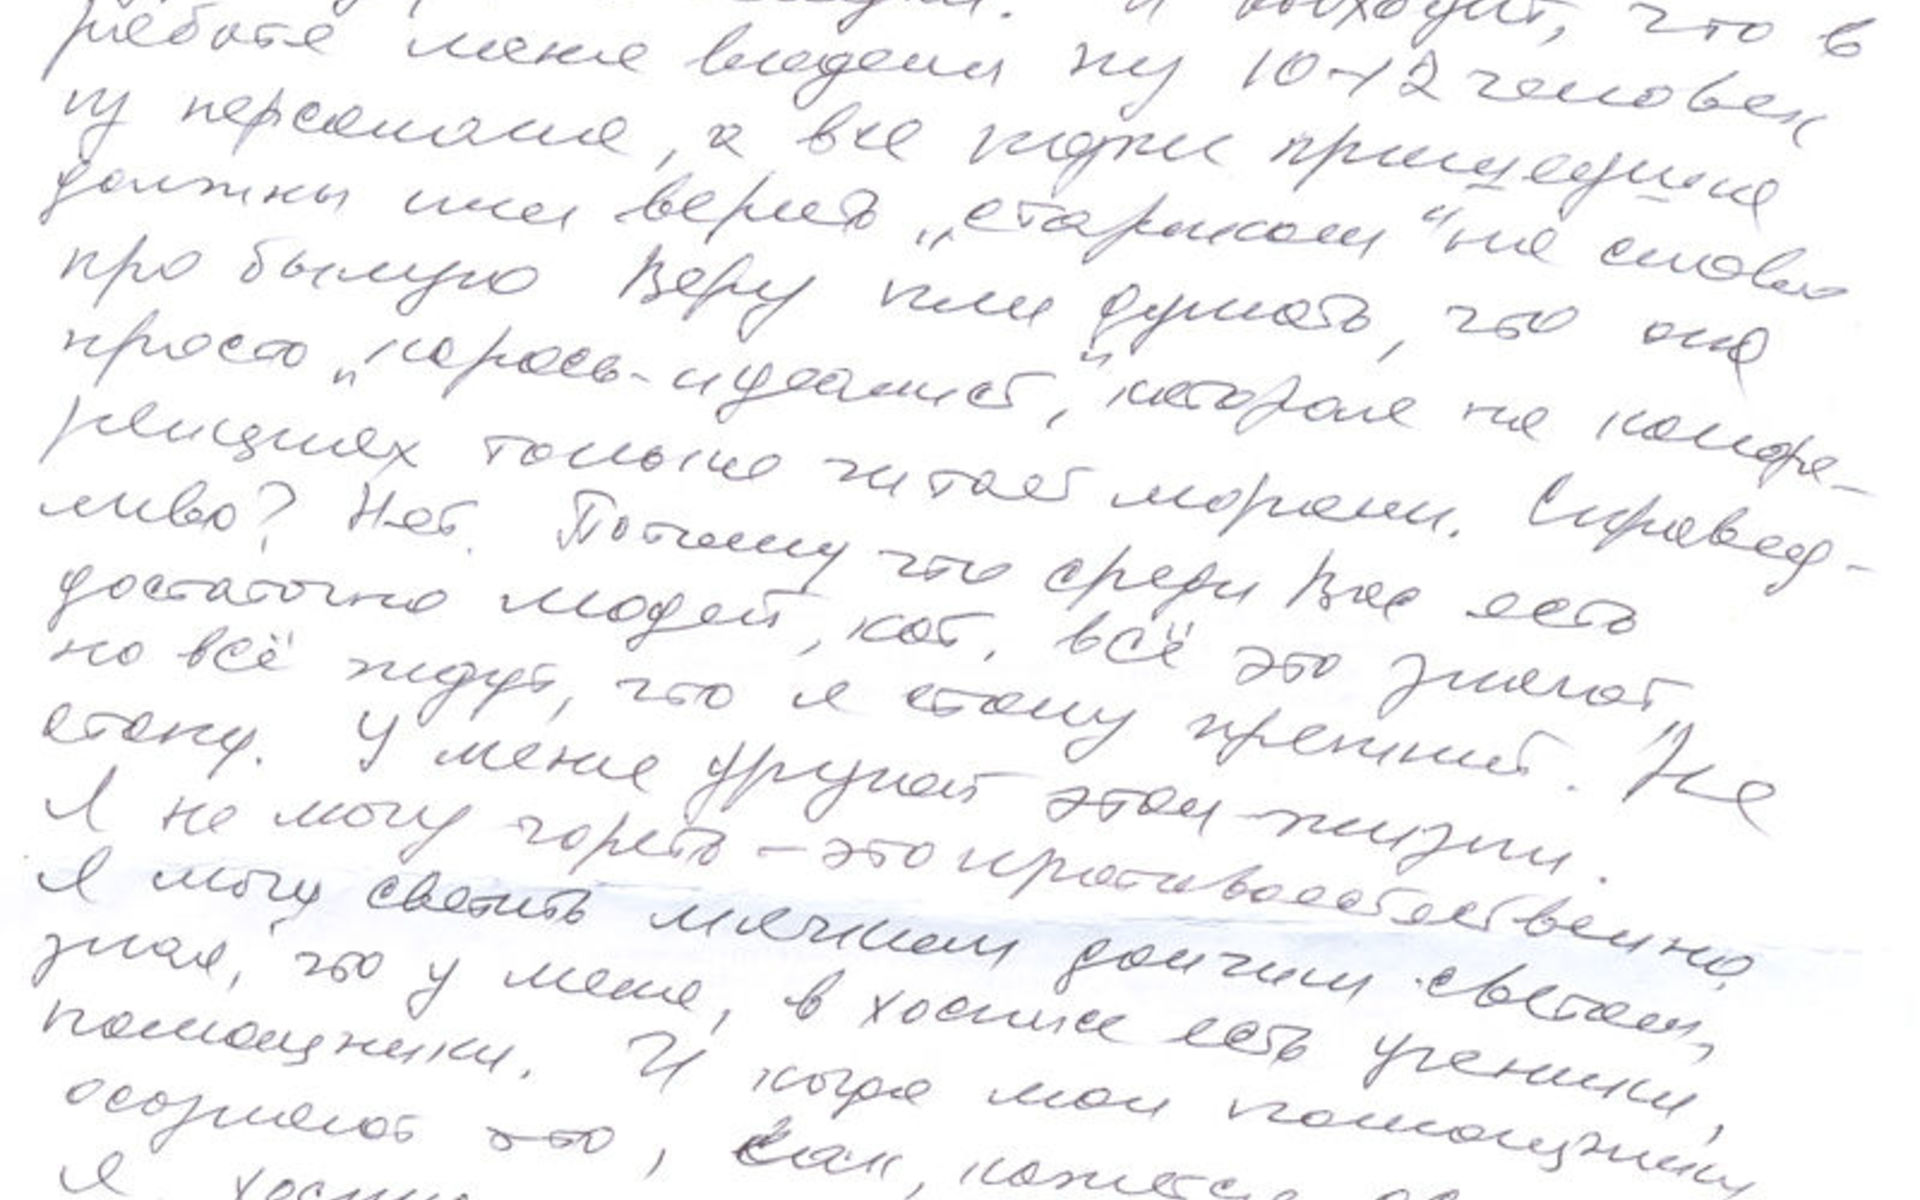 И выходит, что в
работе меня видели ну 10-12 человек
из персонала, а все позже пришедшие
должны или верить „старикам“ на слово
про былую Веру или думать, что она
просто „карась-идеалист“, которая на конфе-
ренциях только читает морали. Справед-
ливо? Нет. Потому что среди Вас есть
достаточно людей, кот. всё это знают,
но всё ждут, что я стану прежней. Не
стану. У меня другой этап жизни.
Я не могу гореть – это противоестественно.
Я могу светить мягким долгим светом,
зная, что у меня, в хосписе есть ученики,
помощники. И когда мои помощники
осознают это, как, кажется
я, хоспис